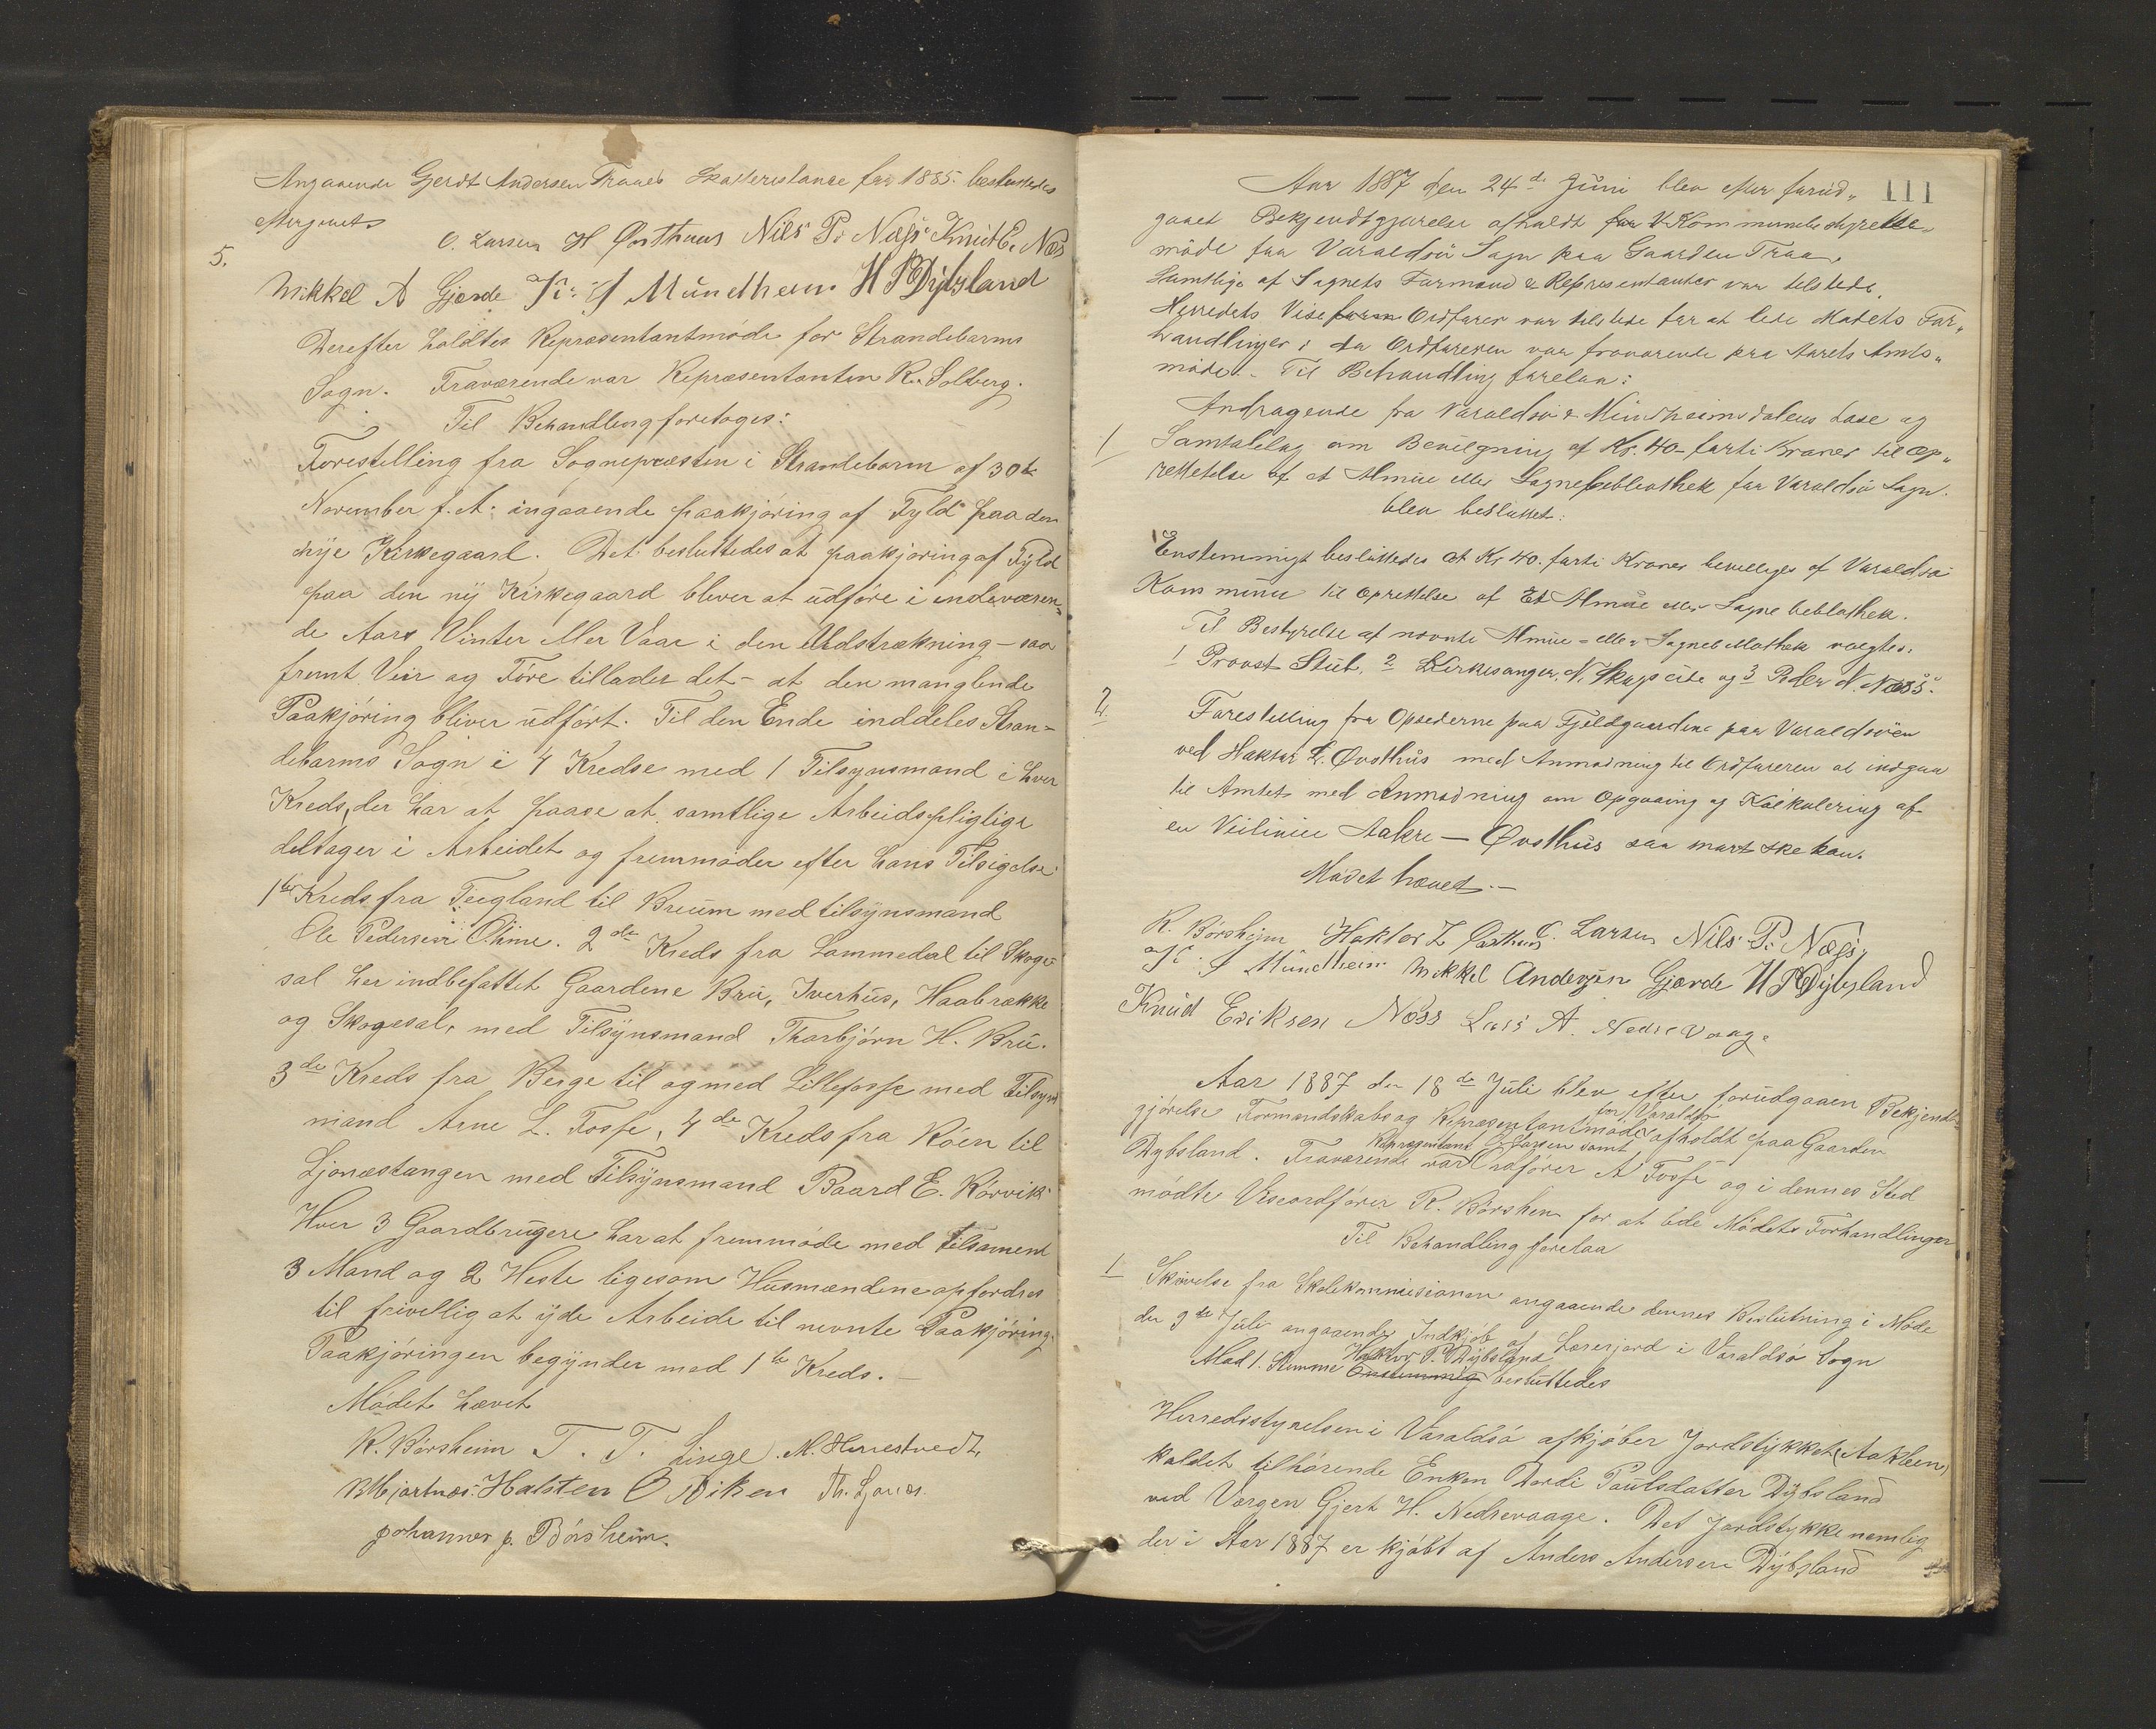 Angaaende Gjerdt Andersen Traaes Skatterestance for 1885. besluttedes
eftergivet.
5.
O. Larsen H Østhuus Nils P. Næss Knut E. Næs
Mikkel A Gjerde J. Mundheim H P Dybsland
Derefter holdtes Repræsentantmøde for Strandebarms
Sogn. Fraværende var Repræsentanten K. Solberg.
Til Behandling foretoges:
Forestilling fra Sognepræsten i Strandebarm af 30te
November f. A. angaaende paakjøring af Fyld paa den
nye Kirkegaard. Det besluttedes at paakjøring af Fyld
paa den ny Kirkegaard bliver at udføre i indeværen-
de Aars Vinter eller Vaar i den Udstrækning - saa
fremt Veir og Føre tillader det - at den manglende
Paakjøring bliver udført. Til den Ende inddeles Stran-
debarms Sogn i 4 Kredse med 1 Tilsynsmand i hver
Kreds, der har at paase at samtlige Arbeidspligtige
deltager i Arbeidet og fremmøder efter hans Tilsigelse
1ste Kreds fra Teigland til Breum med tilsynsmand
Ole Pedersen Ohme. 2de Kreds fra Lammedal til Skoge-
sal her indbefattet Gaardene Bru, Iverhus, Haabrække
og Skogesal, med Tilsynsmand Thorbjørn H. Bru.
3de Kreds fra Berge til og med Lillefosse med Tilsyns
mand Arne L. Fosse, 4de Kreds fra Røen til
Ljonæstangen med Tilsynsmand Baard E. Kørvik
Hver 3 Gaardbrugere har at fremmøde med tilsamen
3 Mand og 2 Heste ligesom Husmændene opfordres
til frivillig at yde Arbeide til nevnte Paakjøring.
Paakjøringen begynder med 1te Kreds. -
Mødet hævet
K. Børsheim T. T. Linge. M. Herrestvedt,
Hjartnæs. Halsten O Oiken Th. Ljones.
Johannes J. Børsheim.
111
Aar 1887 den 24de Juni blev efter forud-
gaaet Bekjendtgjørelse afholdt for V Kommunebestyrelse-
møde for Varaldsø Sogn paa Gaarden Traa.
Samtlige af Sognets Formænd & Repræsentanter var tilstede.
Herredets Viseform Ordfører var tilstede for at lede Mødets For-
handlinger, da Ordføreren var fraværende paa Aarets Amts-
møde. - Til Behandling forelaa:
1
Andragende fra Varaldsø & Mundheimsdalens Læse og
Samtalelag om Bevilgning af Kr. 40 - førti Kroner til Op-
rettelse af et Almue eller Sognebibliothek for Varaldsø Sogn.
blev besluttet:
Enstemmigt besluttedes at Kr 40. førti Kroner bevilliges af Varaldsø
Kommune til Oprettelse af Et Almue eller Sogne bebliothek.
Til Bestyrelse af nævnte Almue - eller Sognebibliothek valgtes:
1 Provst Stub, 2 Kirkesanger N. Skugseide og 3 Peder N. Næss.
2.
Forestilling fra Opsidderne paa Fjeldgaardene paa Varaldsøen
ved Haktor L. Øvsthus med Anmodning til Ordføreren at indgaa
til Amtet med Anmodning om Opgaaing og Kalkulering af
en Veilinie Aakre - Øvsthus saa snart ske kan.
Mødet hævet. -
K. Børsheim Haktor L Østhus O. Larsen Nils P. Næss,
J. Mundheim Mikkel Andersen Gjerde H P Dybsland
Knud Eriksen Næss Lars A. Nedre Vaag.
Aar 1887 den 18de Juli blev efter forudgaaen Bekjendt-
gjørelse Formandskabs og Repræsentantmøde for Varaldsø afholdt paa Gaarden
Dybsland. Fraværende var Repræsentant O. Larsen samt Ordfører A Fosse og i dennes Sted
mødte Viseordfører K. Børsheim for at lede Mødets Forhandlinger
Til Behandling forelaa
1
Skrivelse fra Skolekommisionen angaaende dennes Beslutning i Møde
den 9de Juli angaaende Indkjøb af Lærerjord i Varaldsø Sogn
Mod 1. Stemme Haktor P. Dybsland Enstemmig besluttedes
Herredsstyrelsen i Varaldsø afkjøber Jordstykket (Aakleen)
kaldet tilhørende Enken Dordi Paulsdatter Dybsland
ved Værgen Gjert H. Nedrevaage. Det Jordstykke nemlig
der i Aar 1887 er kjøbt af Anders Andersen Dybsland